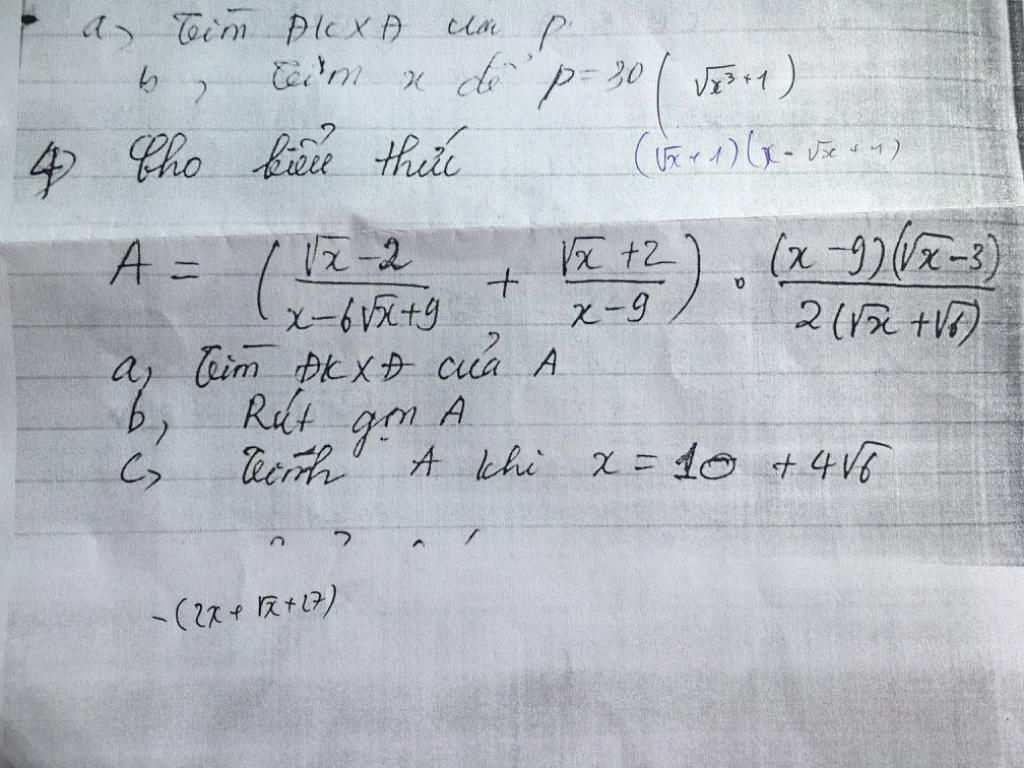 a, Tìm ĐKXĐ của P.
b, Tìm x để P = 30 (√x³ + 1)
(√x + 1)(x - √x + 1)
4) Cho biểu thức
A = ( (√x - 2)/(x - 6√x + 9) + (√x + 2)/(x - 9) ) · ((x - 9)(√x - 3))/(2(√x + √6))
a, Tìm ĐKXĐ của A
b, Rút gọn A
c, Tính A khi x = 10 + 4√6
-(2x + √x + 27)